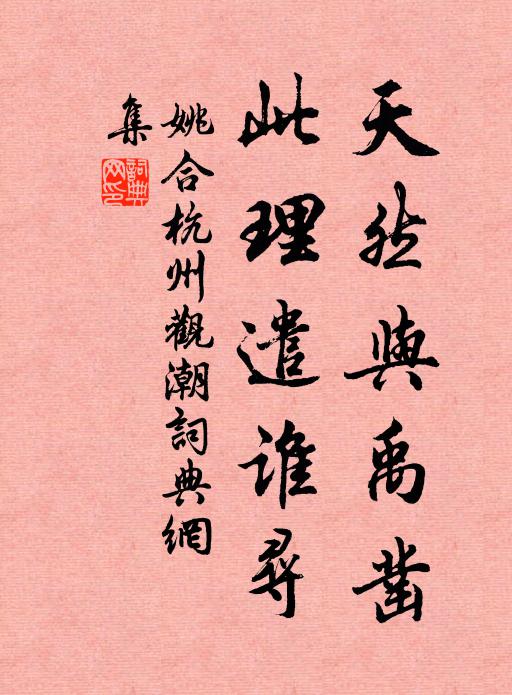 天然與禹凿
此理遣谁尋
姚合杭州觀潮詞典網
集
詞典網印